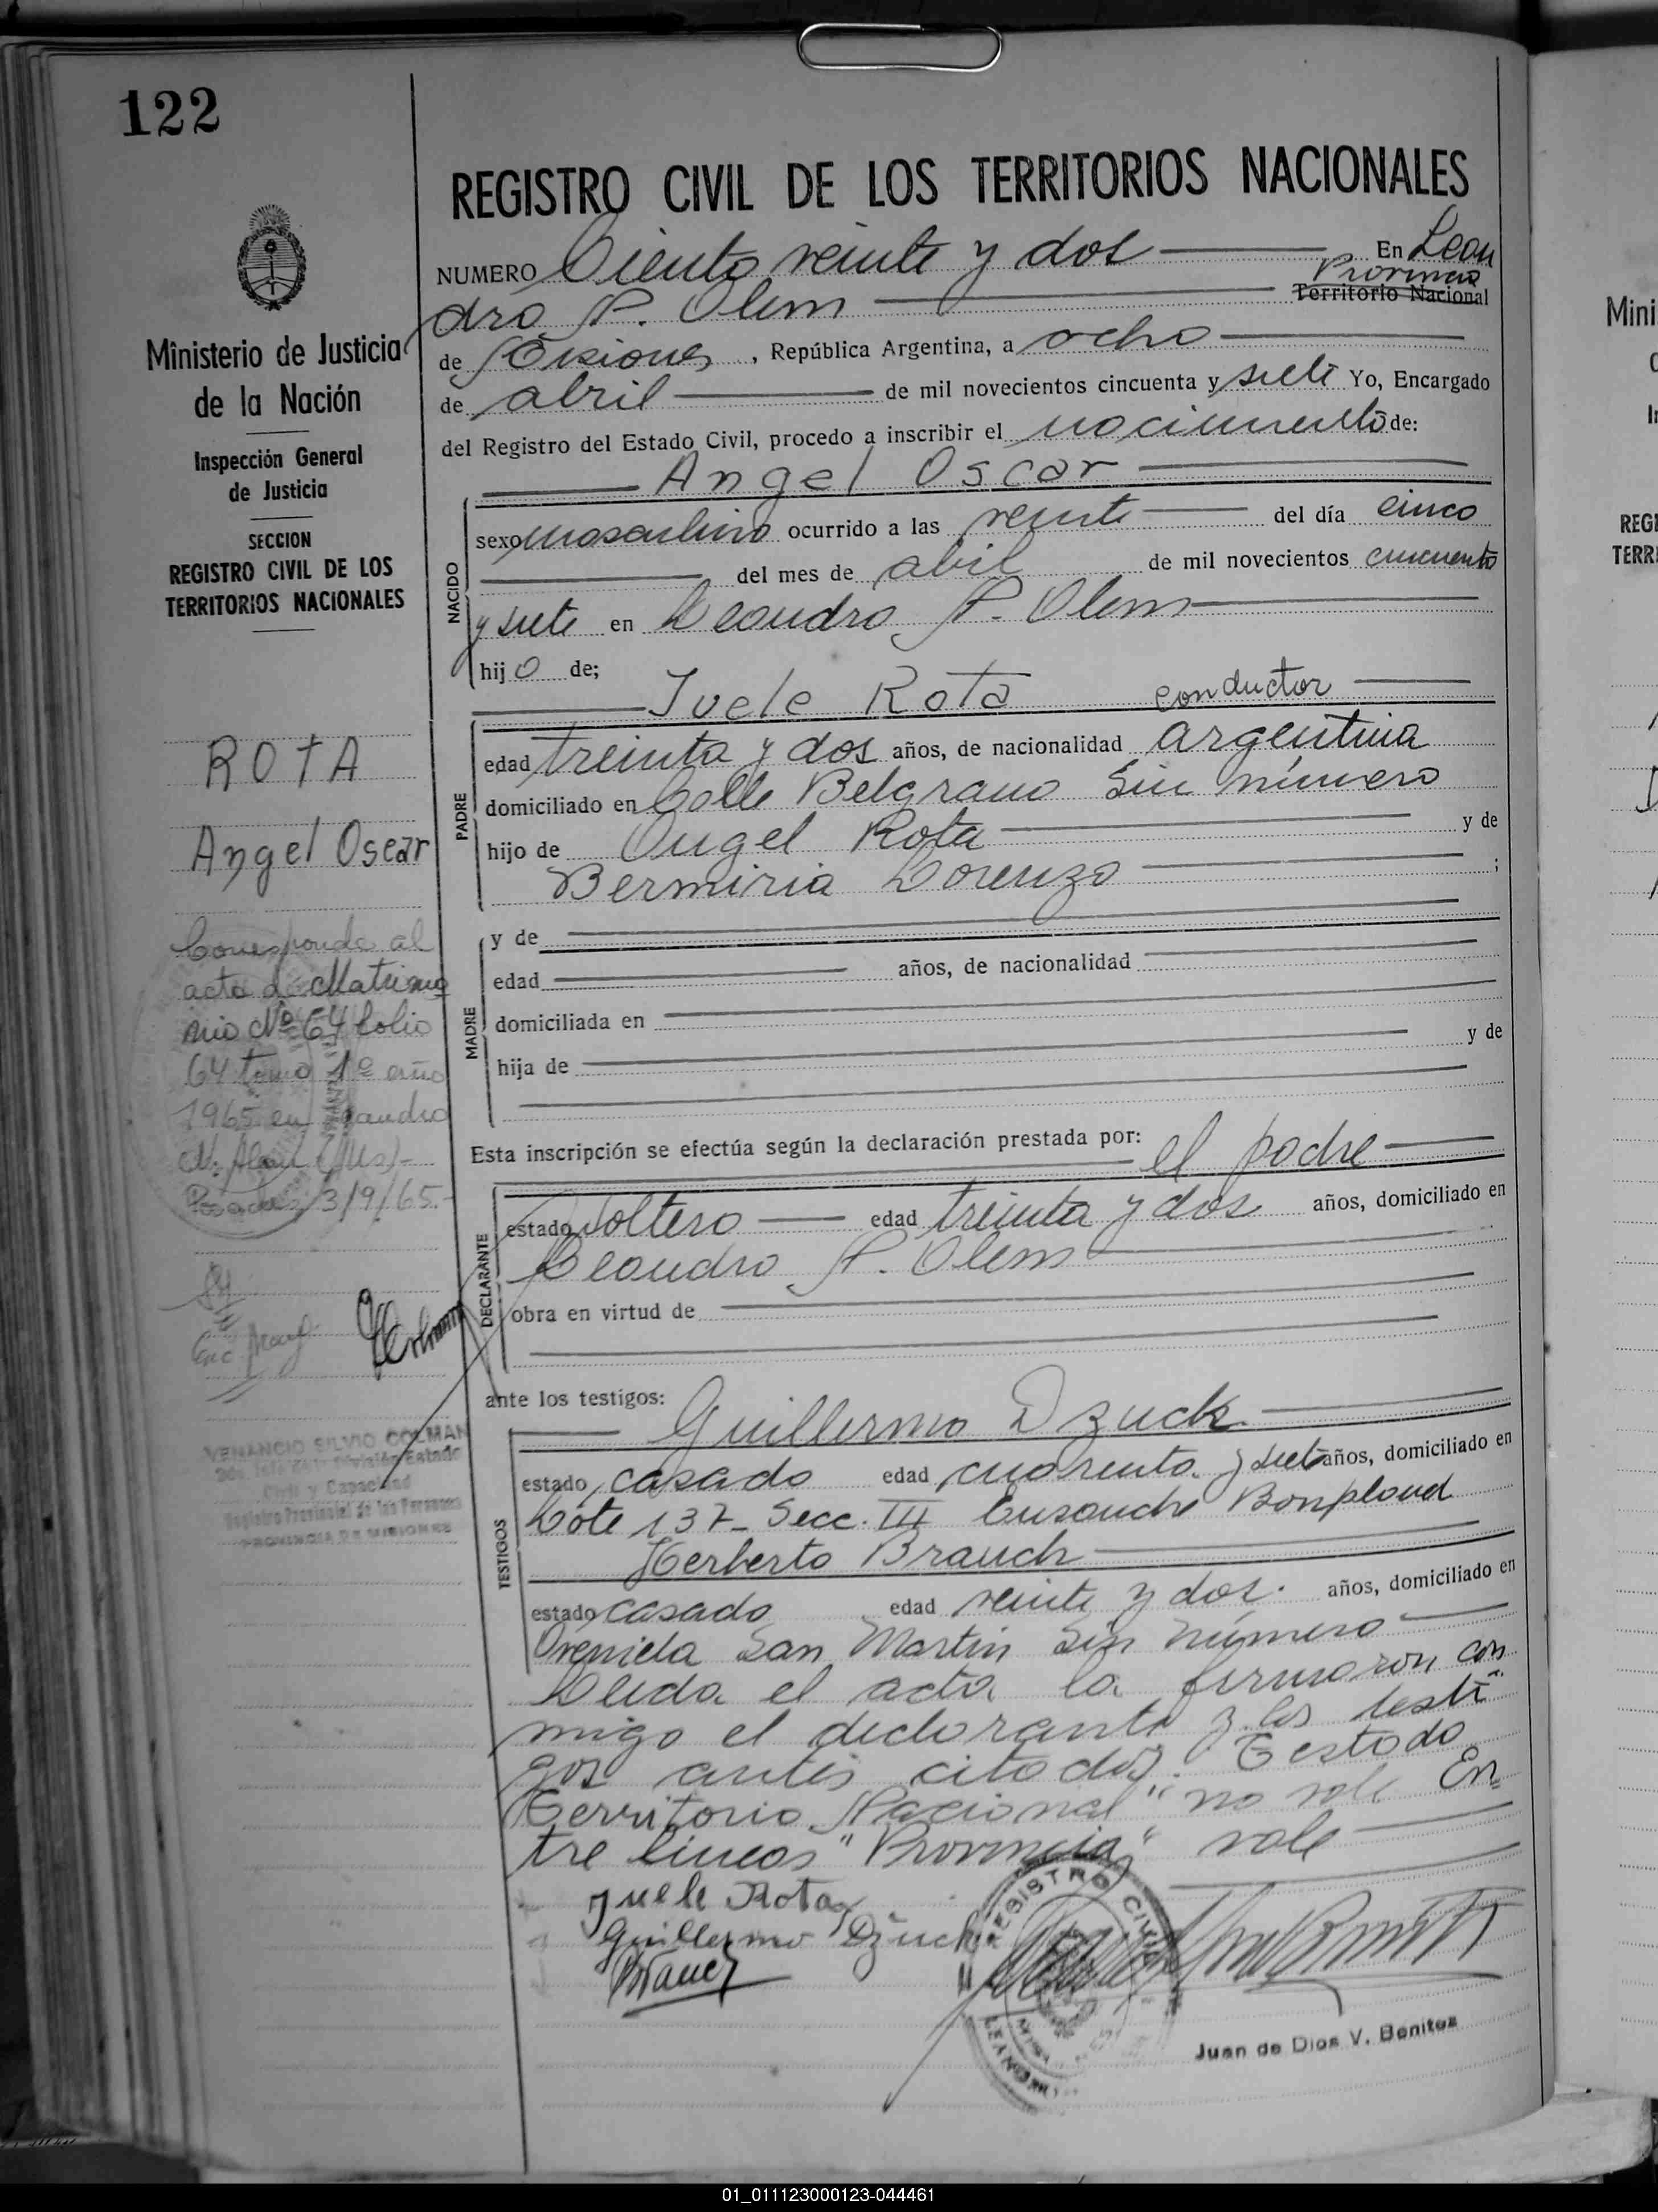 122
REGISTRO CIVIL DE LOS TERRITORIOS NACIONALES
NUMERO Ciento veinte y dos En Lean
Provincia
dro N. Alem Territorio Nacional
de Misiones, República Argentina, a ocho
de abril de mil novecientos cincuenta y siete Yo, Encargado
del Registro del Estado Civil, procedo a inscribir el nacimiento de:
Angel Oscar
NACIDO
sexo masculino ocurrido a las veinte del día cinco
del mes de abril de mil novecientos cincuenta
y siete en Leandro N. Alem
hijo de;
Juele Rota conductor
PADRE
edad treinta y dos años, de nacionalidad argentina
domiciliado en Calle Belgrano Sin número
hijo de Angel Rota y de
Bermiria Lorenzo ;
MADRE
y de
edad años, de nacionalidad
domiciliada en
hija de y de
Esta inscripción se efectúa según la declaración prestada por: el padre
DECLARANTE
estado soltero edad treinta y dos años, domiciliado en
Leandro N. Alem
obra en virtud de
ante los testigos:
Guillermo Dzuck
TESTIGOS
estado casado edad cuarenta y siete años, domiciliado en
Lote 137- Secc. III Ensanche Bonpland
Herberto Brauch
estado casado edad veinte y dos. años, domiciliado en
Avenida San Martin Sin número
Leida el acta la firmaron con
migo el declarante y los testi
gos antes citados. Testado
Territorio Nacional" no vale En
tre lineas "Provincia" vale
Juele Rota
Guillermo Dzuck
REGISTRO CIVIL
Juan de Dios V. Benitez
Ministerio de Justicia
de la Nación
Inspección General
de Justicia
SECCION
REGISTRO CIVIL DE LOS
TERRITORIOS NACIONALES
ROTA
Angel Oscar
Corresponde al
acta de Matrimo
nio Nº 64 folio
64 tomo 1º año
1965 en Leandro
N. Alem (Mis)-
Posadas, 3/9/65.-
VENANCIO SILVIO COLMAN
2do. Jefe de la División Estado
Civil y Capacidad
Registro Provincial de las Personas
PROVINCIA DE MISIONES
Mini
REGI
TERR
01_011123000123-044461